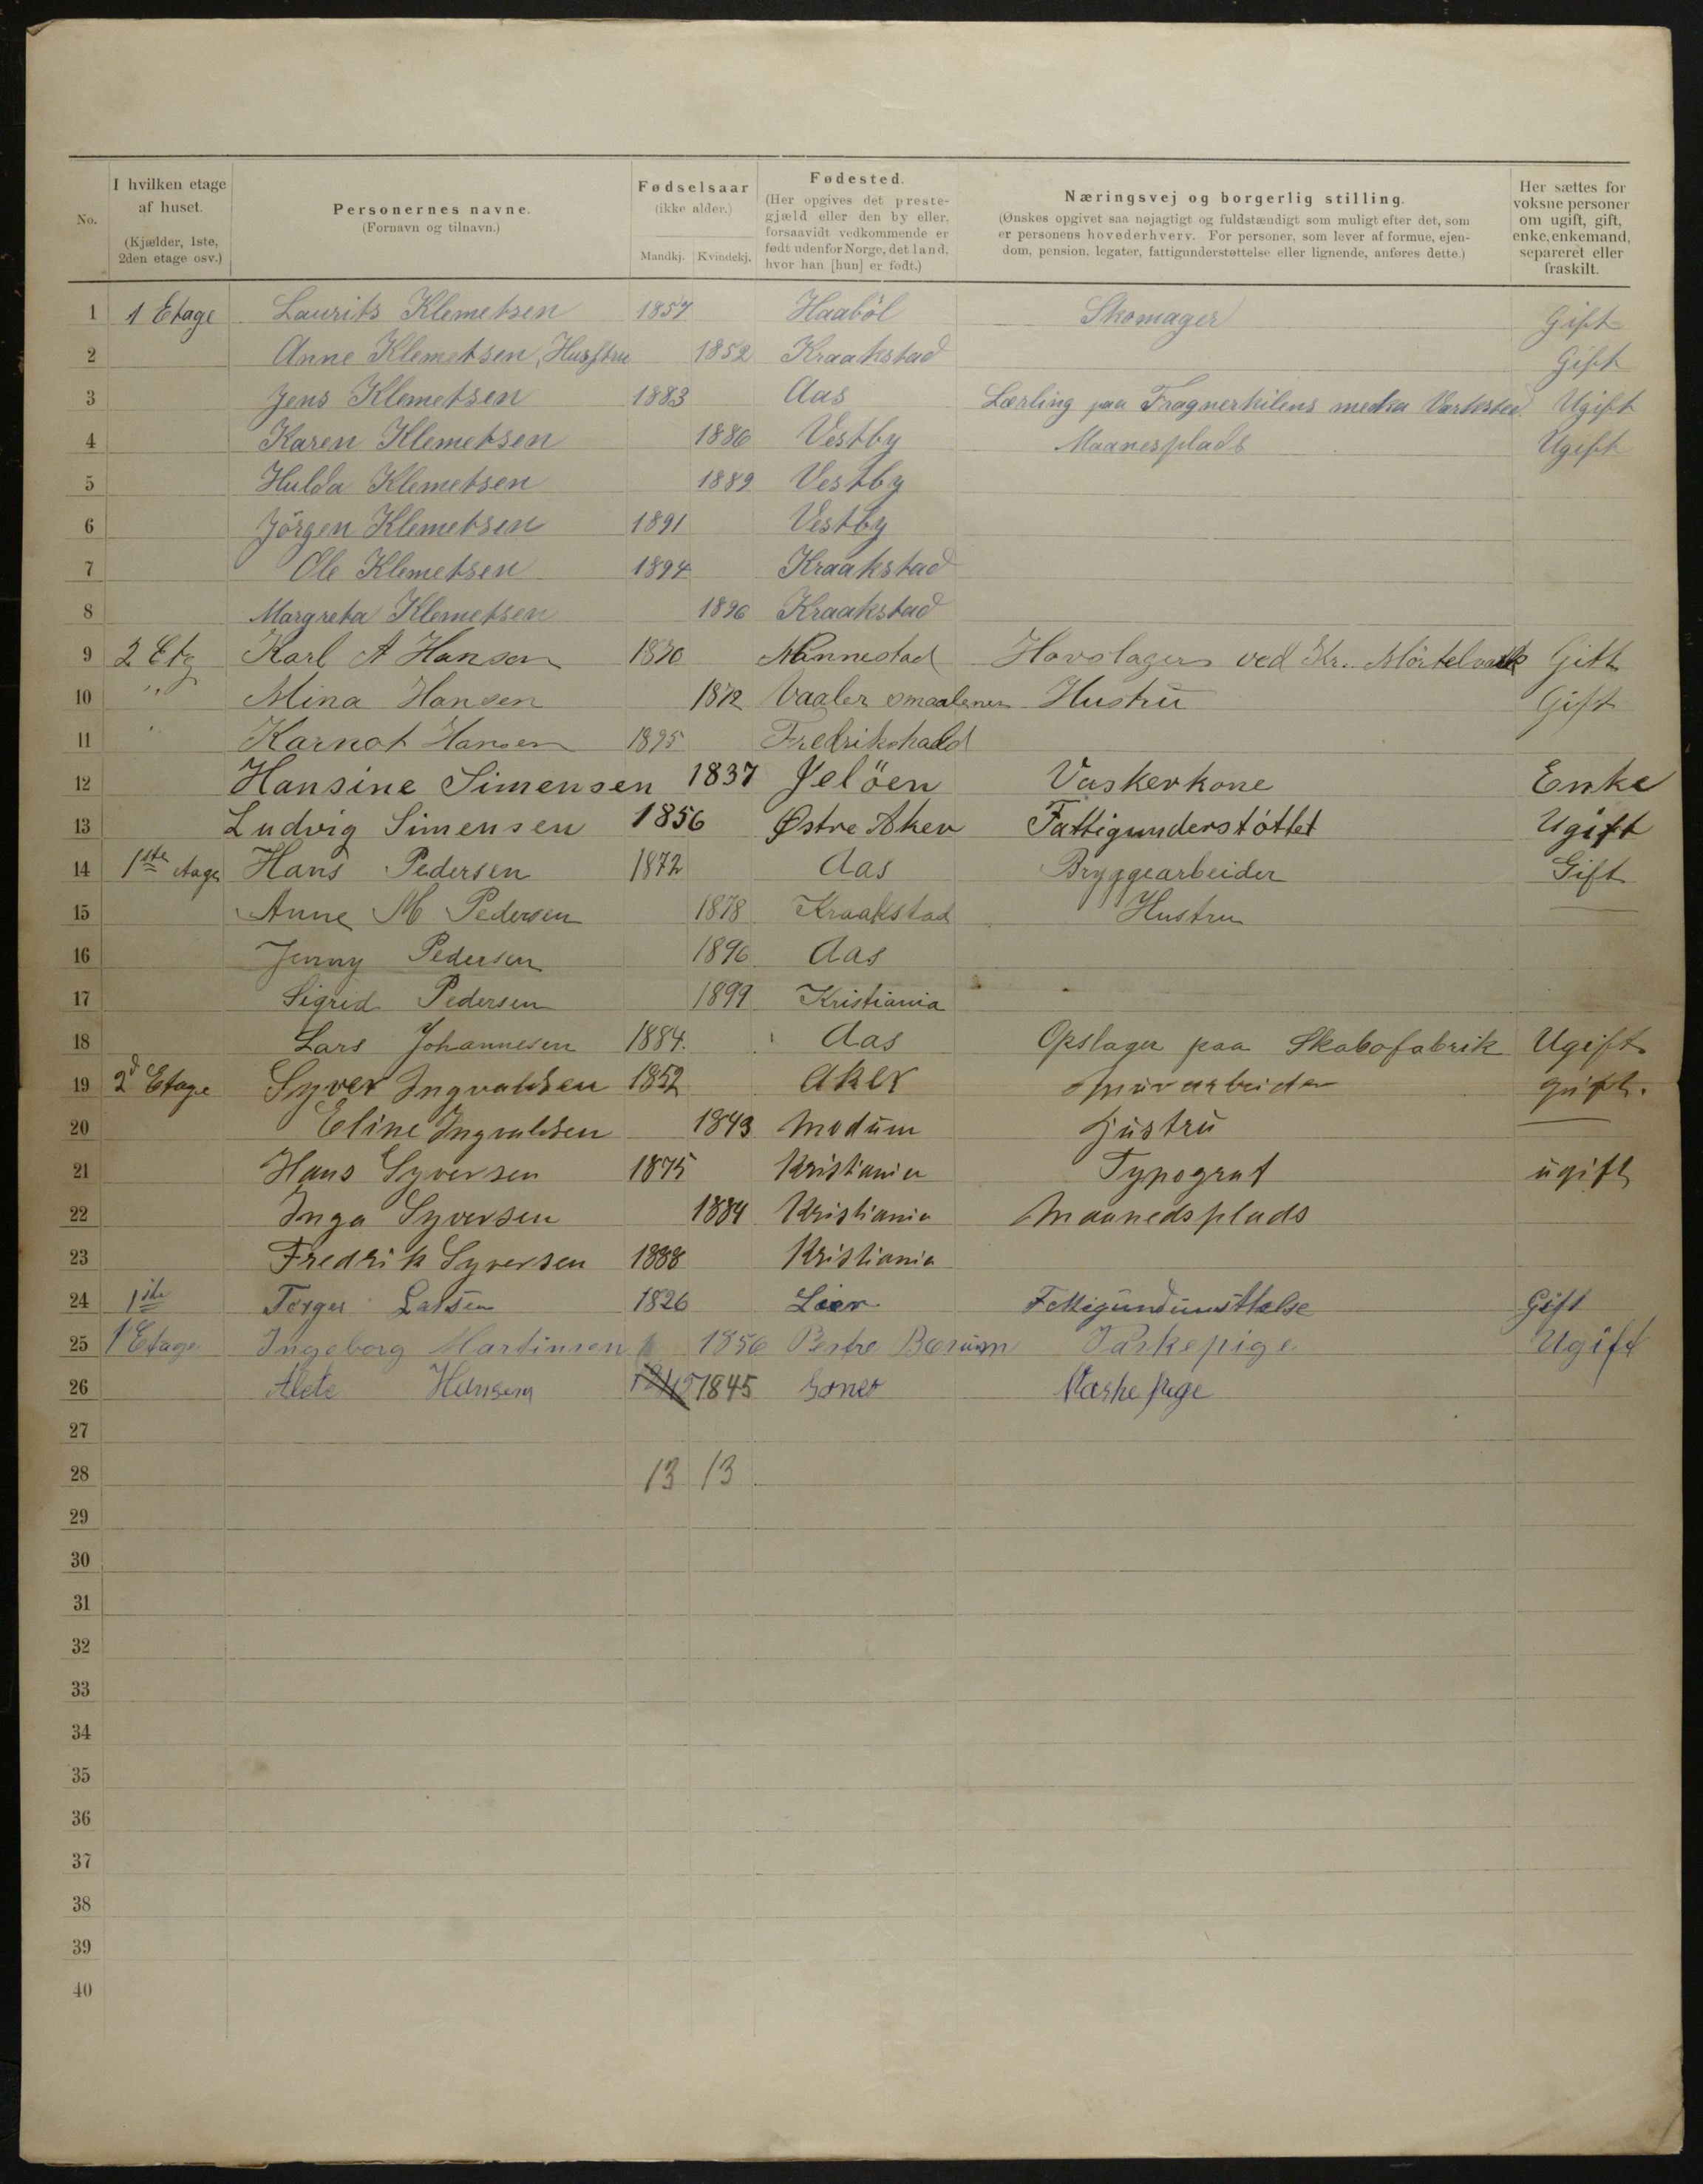 No.
I hvilken etage af huset. (Kjælder, 1ste, 2den etage osv.)
Personernes navne. (Fornavn og tilnavn.)
Fødselsaar (ikke alder.) Mandkj. Kvindekj.
Fødested. (Her opgives det prestegjæld eller den by eller, forsaavidt vedkommende er født udenfor Norge, det land, hvor han [hun] er født.)
Næringsvej og borgerlig stilling. (Ønskes opgivet saa nøjagtigt og fuldstændigt som muligt efter det, som er personens hovederhverv. For personer, som lever af formue, ejendom, pension, legater, fattigunderstøttelse eller lignende, anføres dette.)
Her sættes for voksne personer om ugift, gift, enke, enkemand, separeret eller fraskilt.
1 1 Etage Laurits Klemetsen 1857 Haaböl Skomager Gift
2 Anne Klemetsen, Husstru 1852 Kraakstad Gift
3 Jens Klemetsen 1883 Aas Lærling paa Fragnerkilens meka Værksted Ugift
4 Karen Klemetsen 1886 Vestby Maanesplads Ugift
5 Hulda Klemetsen 1889 Vestby
6 Jörgen Klemetsen 1891 Vestby
7 Ole Klemetsen 1894 Kraakstad
8 Margreta Klemetsen 1896 Kraakstad
9 2 Etg Karl A Hansen 1870 Nannestad Hovslager ved Kr. Mörtelværk Gift
10 " Mina Hansen 1872 Vaaler smaalenen Hustru Gift
11 " Karnot Hansen 1895 Fredrikshald
12 Hansine Simensen 1837 Jelöen Vaskerkone Enke
13 Ludvig Simensen 1856 Østre Aker Fattigunderstöttet Ugift
14 1ste etage Hans Pedersen 1872 Aas Bryggearbeider Gift
15 Anne M Pedersen 1878 Kraakstad Hustru —
16 Jenny Pedersen 1896 Aas
17 Sigrid Pedersen 1899 Kristiania
18 Lars Johannesen 1884. Aas Opslager paa Skabofabrik Ugift
19 2d Etage Syver Ingvaldsen 1852 Aker gift.
20 Eline Ingvaldsen 1843 Modum Hustru —
21 Hans Syversen 1875 Kristiania Typograf ugift
22 Inga Syversen 1884 Kristiania Maanedsplads
23 Fredrik Syversen 1888 Kristiania
24 1ste Torger Larsen 1826 Lier Gift
25 1 Etage Ingeborg Martinsen 1856 Bærum Vaskepige Ugift
26 Alete Hansen 1845 1845 Vaskepige
27
28 13 13
29
30
31
32
33
34
35
36
37
38
39
40